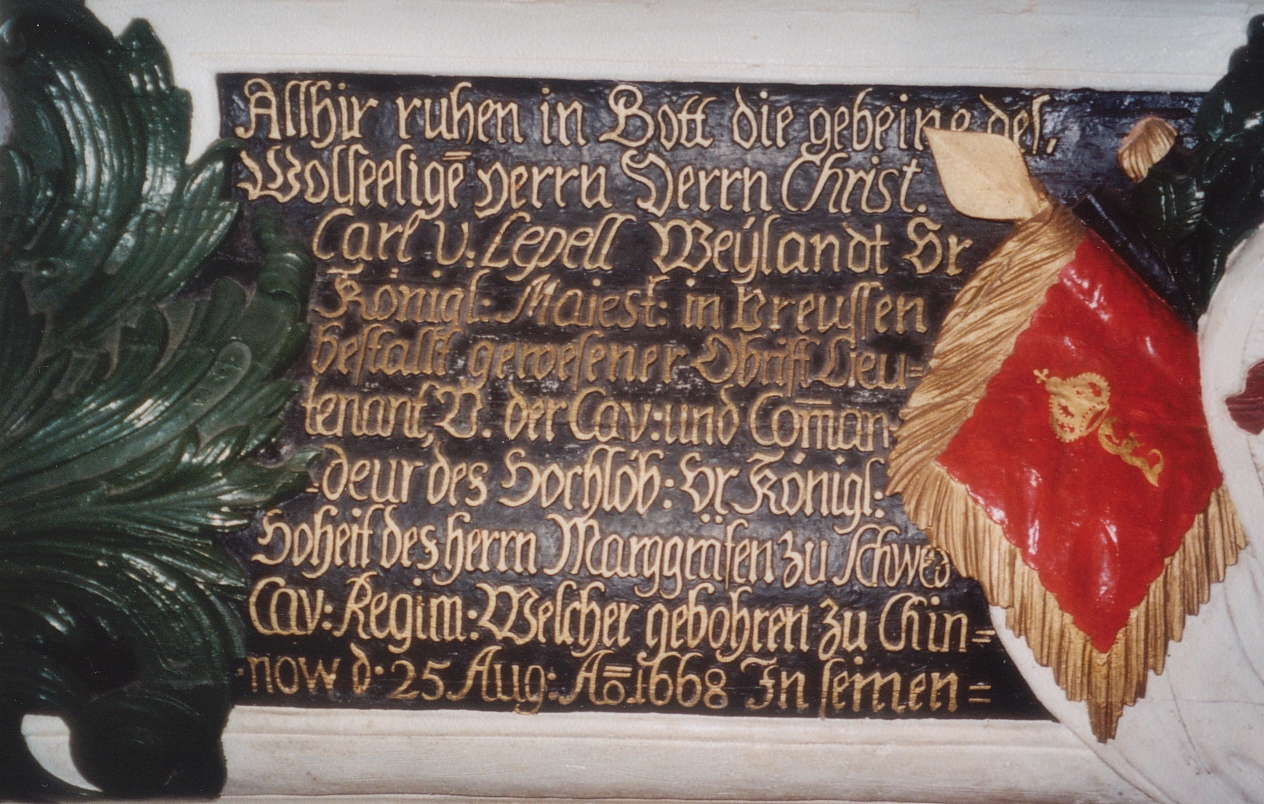 Allhir ruhen in Gott die gebeine des,
Wolseelige̅ herrn Herrn Christ.
Carl v. Lepell Weÿlandt Sr
Königl: Majest: in Preussen
bestallt gewesener Obrist Lieu=
tenant, V. der Cav: und Com̅an=
deur des Hochlöb: Sr Königl:
Hoheit des herrn Marggräfen zu Schwed
Cav: Regim: Welcher gebohren zu Chin=
now d. 25 Aug: Ao. 1668 In seinen=